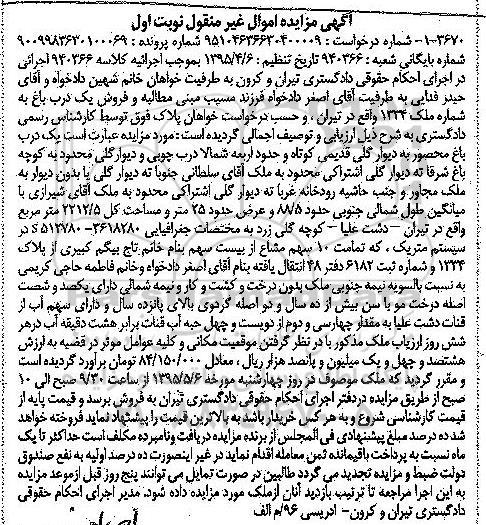 آگهی مزایده اموال غیر منقول نوبت اول
۳۶۷۰-۱- شماره درخواست : ۹۵۱۰۴۶۳۶۶۳۰۴۰۰۰۰۹ شماره پرونده : ۹۰۰۹۹۸۳۶۳۰۱۰۰۰۶۹
شماره بایگانی شعبه : ۹۴۰۳۶۶ تاریخ تنظیم : ۱۳۹۵/۴/۶ بموجب اجرائیه کلاسه ۹۴۰۳۶۶ اجرائی
در اجرای احکام حقوقی دادگستری تیران و کرون به طرفیت خواهان خانم شهین دادخواه و آقای
حیدر فدایی به طرفیت آقای اصغر دادخواه فرزند مسیب مبنی مطالبه و فروش یک درب باغ به
شماره ملک ۱۳۳۴ واقع در تیران . و حسب درخواست خواهان پلاک فوق توسط کارشناس رسمی
دادگستری به شرح ذیل ارزیابی و توصیف اجمالی گردیده است: مورد مزایده عبارت است یک درب
باغ محصور به دیوار گلی قدیمی کوتاه و حدود اربعه شمالا درب چوبی و دیوار گلی محدود به کوچه
باغ شرقا ته دیوار گلی اشتراکی محدود به ملک آقای سلطانی جنوبا ته دیوار گلی یا بدون دیوار به
ملک مجاور و جنب حاشیه رودخانه غربا ته دیوار گلی اشتراکی محدود به ملک آقای شیرازی با
میانگین طول شمالی جنوبی حدود ۸۸/۵ و عرض حدود ۲۵ متر و مساحت کل ۲۲۱۲/۵ متر مربع
واقع در تیران – دشت علیا – کوچه گلی زرد به مختصات جغرافیایی ۳۶۱۸۲۸۰- ۵۱۲۷۸۰ در
سیستم متریک ، که تمامت ۱۰ سهم مشاع از بیست سهم بنام خانم تاج بیگم کبیری از پلاک
۱۳۳۴ و شماره ثبت ۶۱۸۲ دفتر ۴۸ انتقال یافته بنام آقای اصغر دادخواه وخانم فاطمه حاجی کریمی
به نسبت بالسویه نیمه جنوبی ملک بدون درخت و کشت و کار و نیمه شمالی دارای یکصد و شصت
اصله درخت مو با سن بیش از ده سال و دو اصله گردوی بالای پانزده سال و دارای سهم آب از
قنات دشت علیا به مقدار چهارسی و دوم از دویست و چهل حبه آب قنات برابر هشت دقیقه آب درهر
شش روز ارزیاب ملک مذکور با در نظر گرفتن موقعیت مکانی و کلیه عوامل موثر در قضیه به ارزش
هشتصد و چهل و یک میلیون و پانصد هزار ریال ، معادل ۸۴/۱۵۰/۰۰۰ تومان برآورد گردیده است
و مقرر گردید که ملک موصوف در روز چهارشنبه مورخه ۱۳۹۵/۵/۶ از ساعت ۹/۳۰ صبح الی ۱۰
صبح از طریق مزایده دردفتر اجرای احکام حقوقی دادگستری تیران به فروش برسد و قیمت پایه از
قیمت کارشناسی شروع و به هر کس خریدار باشد و بالاترین قیمت را پیشنهاد نماید فروخته خواهد
شد ده درصد مبلغ پیشنهادی فی المجلس از برنده مزایده دریافت ونامبرده مکلف است حداکثر تا یک
ماه نسبت به پرداخت باقیمانده ثمن معامله اقدام نماید در غیر اینصورت ده درصد اولیه به نفع صندوق
دولت ضبط و مزایده تجدید می گردد طالبین در صورت تمایل می توانند پنج روز قبل ازموعد مزایده
به این اجرا مراجعه تا ترتیب بازدید آنان ازملک مورد مزایده داده شود. مدیر اجرای احکام حقوقی
دادگستری تیران و کرون- ادریسی ۹۶/م الف